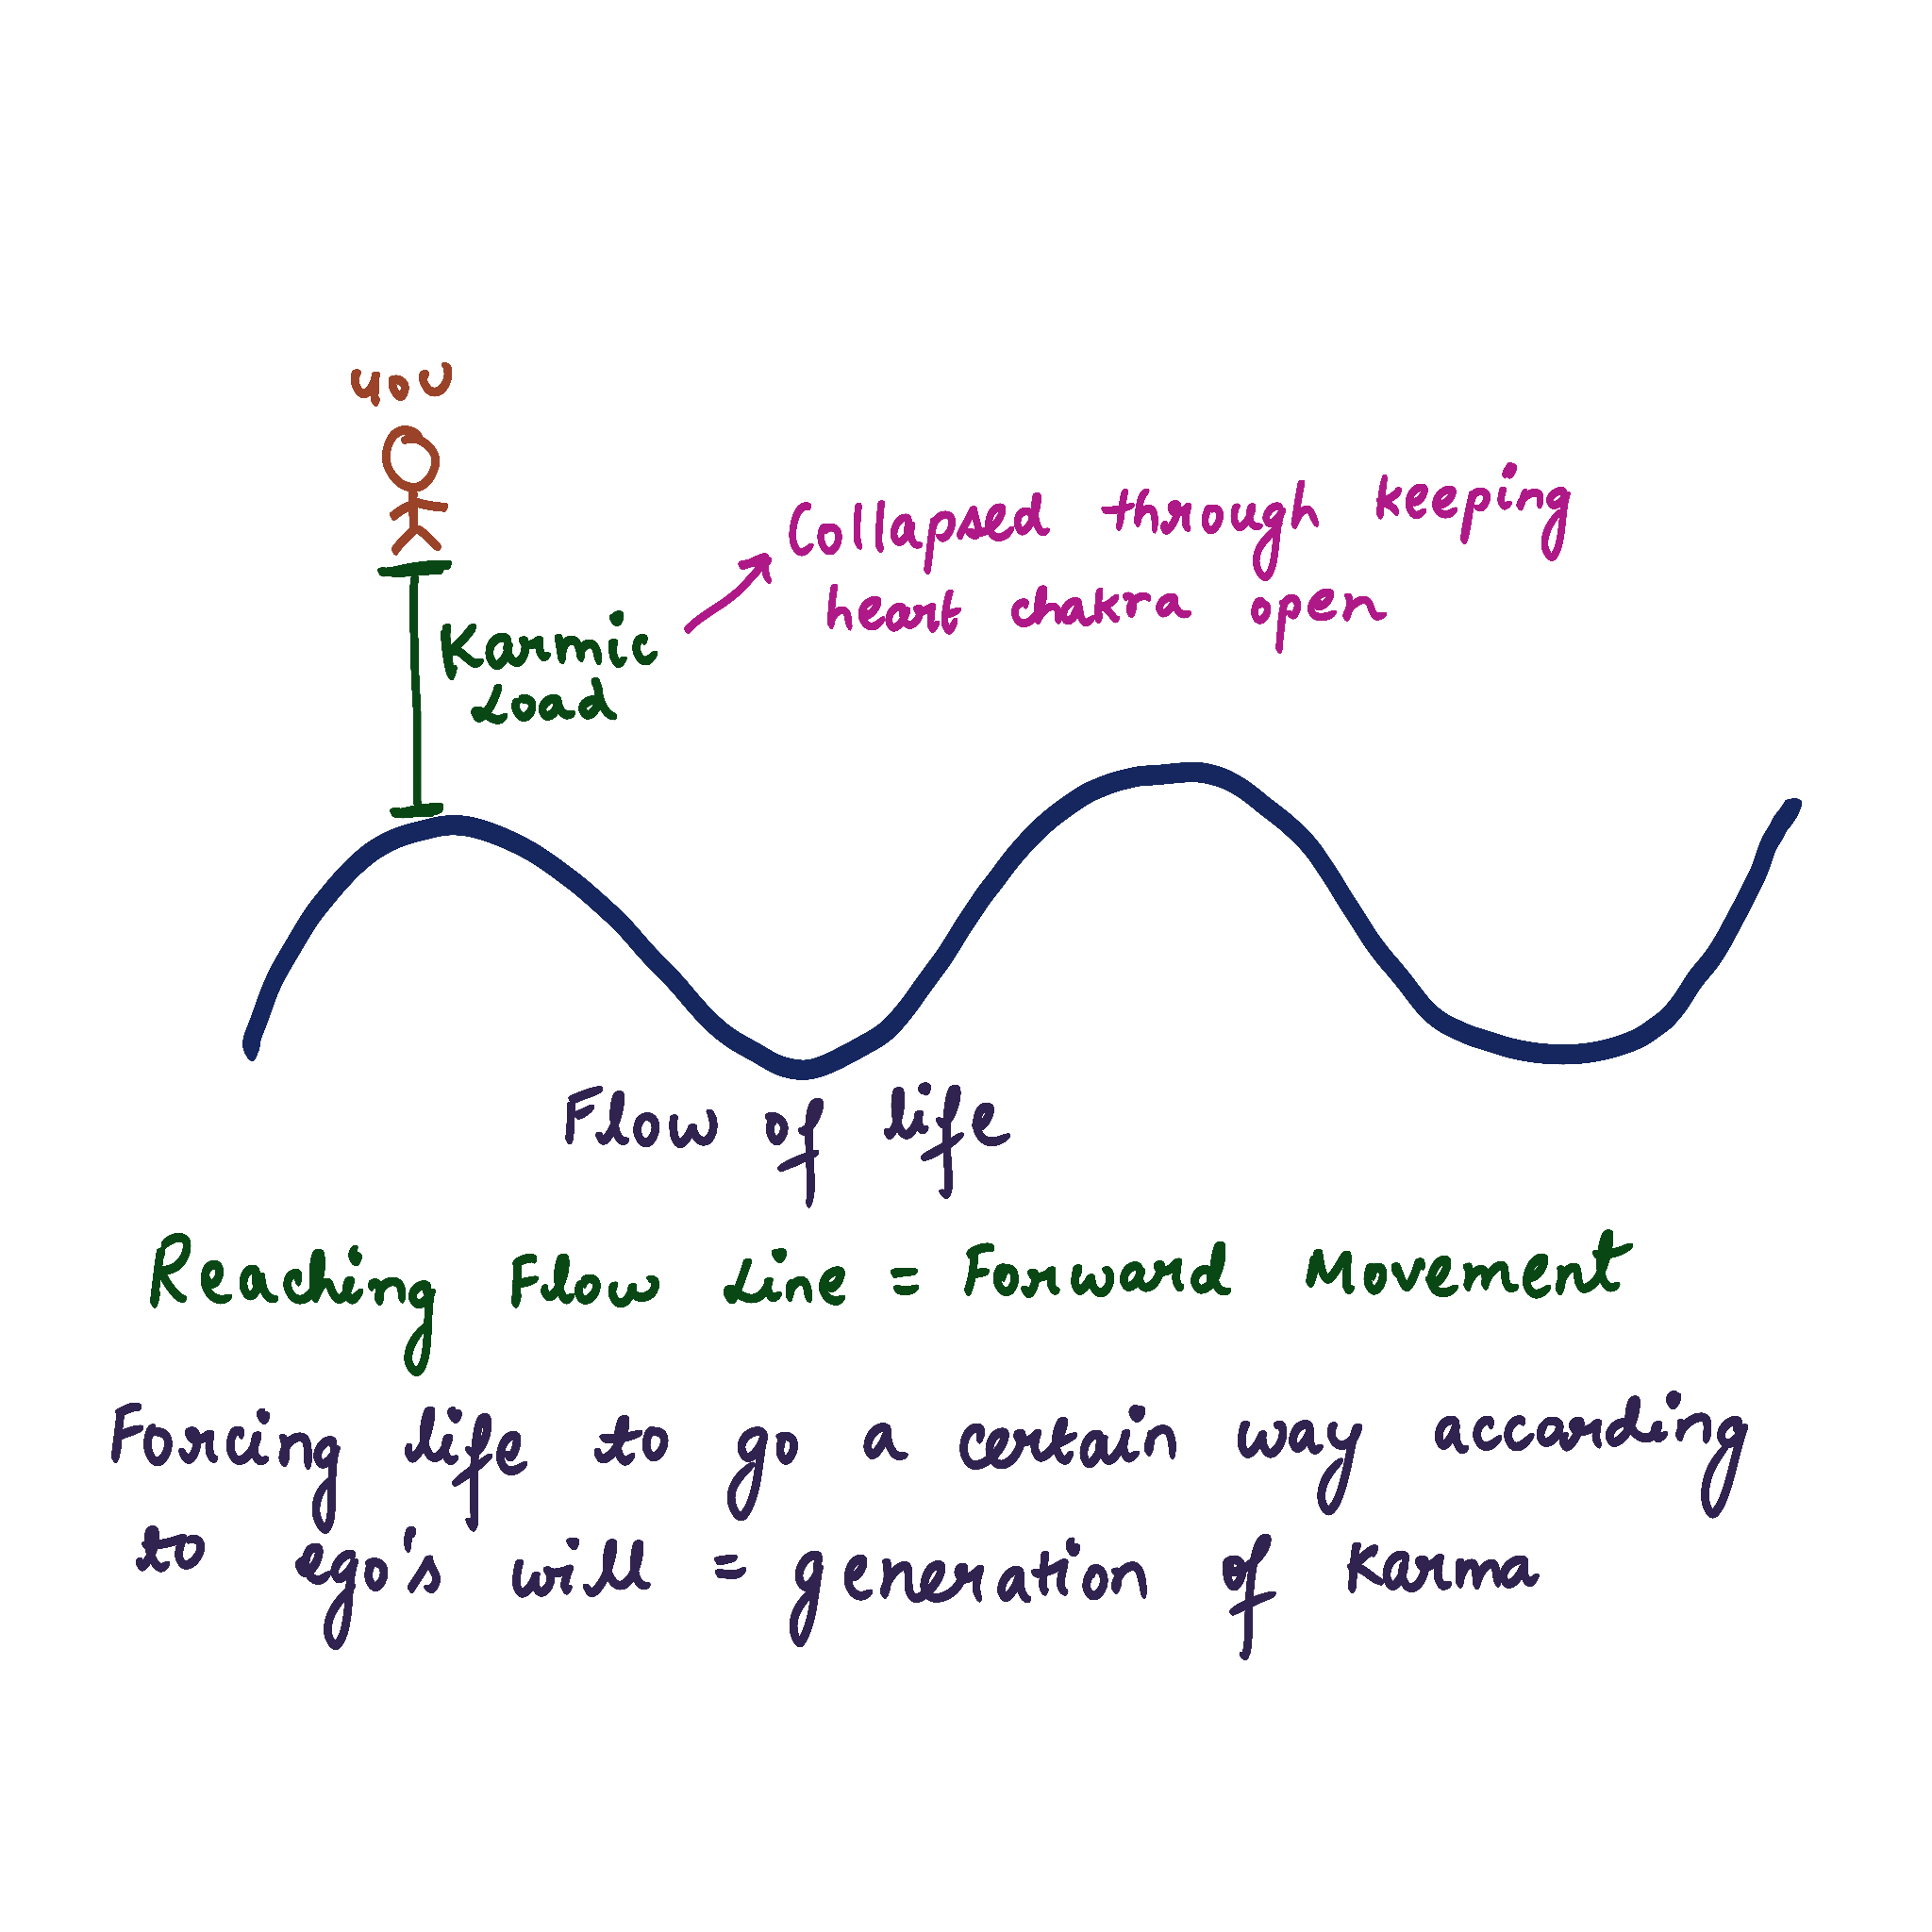 you
Collapsed through keeping
heart chakra open
Karmic
Load
Flow of life
Reaching Flow Line = Forward Movement
Forcing life to go a certain way according
to ego's will = generation of Karma